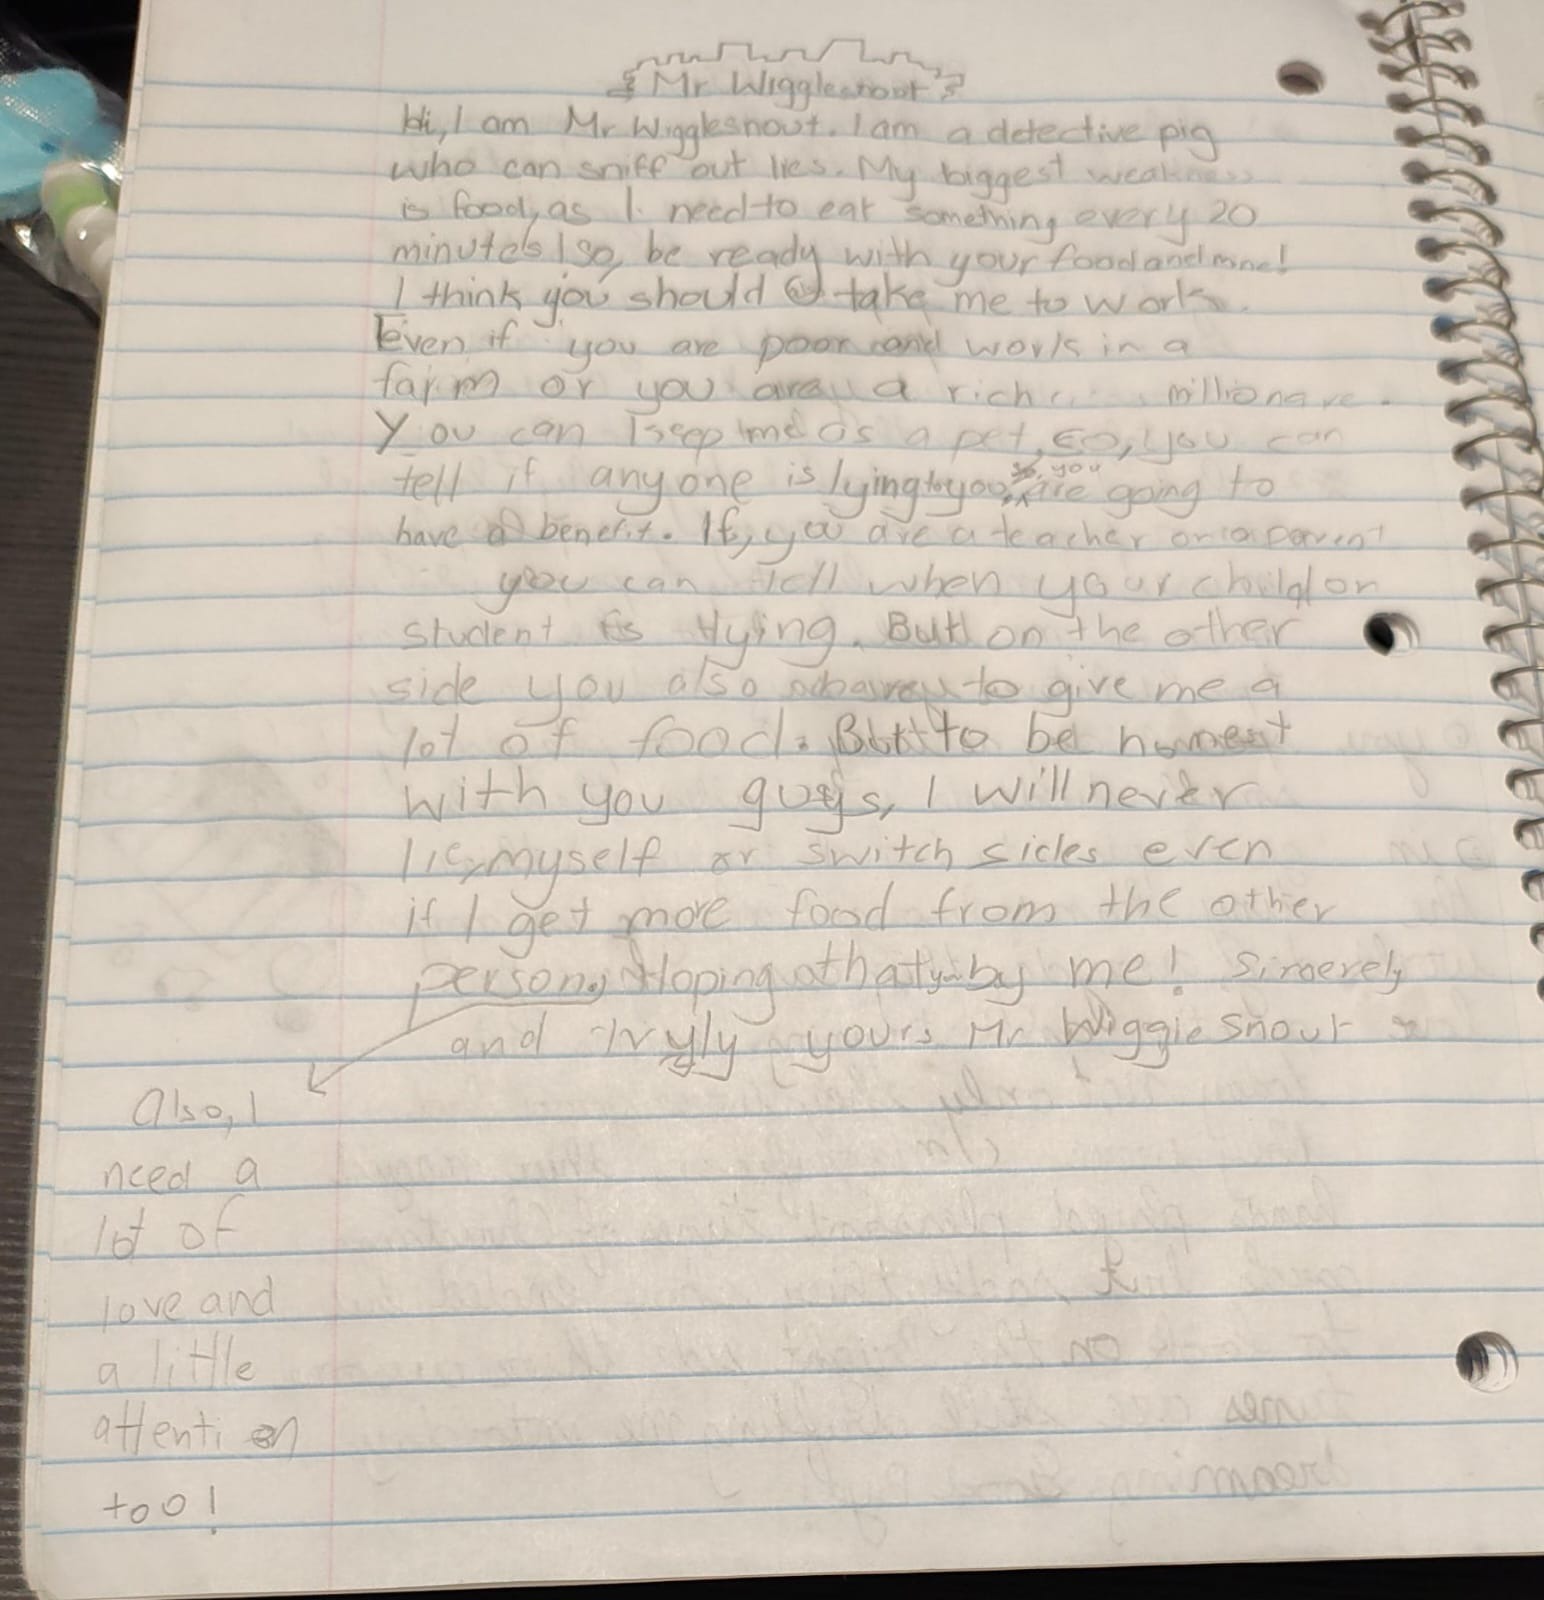 Mr Wigglesnout
Hi, I am Mr Wigglesnout. I am a detective pig
who can sniff out lies. My biggest weakness
is food, as I need to eat something every 20
minutes so, be ready with your food and mine!
I think you should take me to work.
Even if you are poor and work in a
farm or you are a rich millionare.
You can keep me as a pet, so, you can
tell if anyone is lying to you, so, you are going to
have a benefit. If, you are a teacher or a parent
you can tell when your child or
student is lying. But on the other
side you also have to give me a
lot of food. But to be honest
with you guys, I will never
lie, myself or switch sides even
if I get more food from the other
person, Hoping that by me! Sincerely
and truly yours Mr Wigglesnout
Also, I
need a
lot of
love and
a little
attention
too!